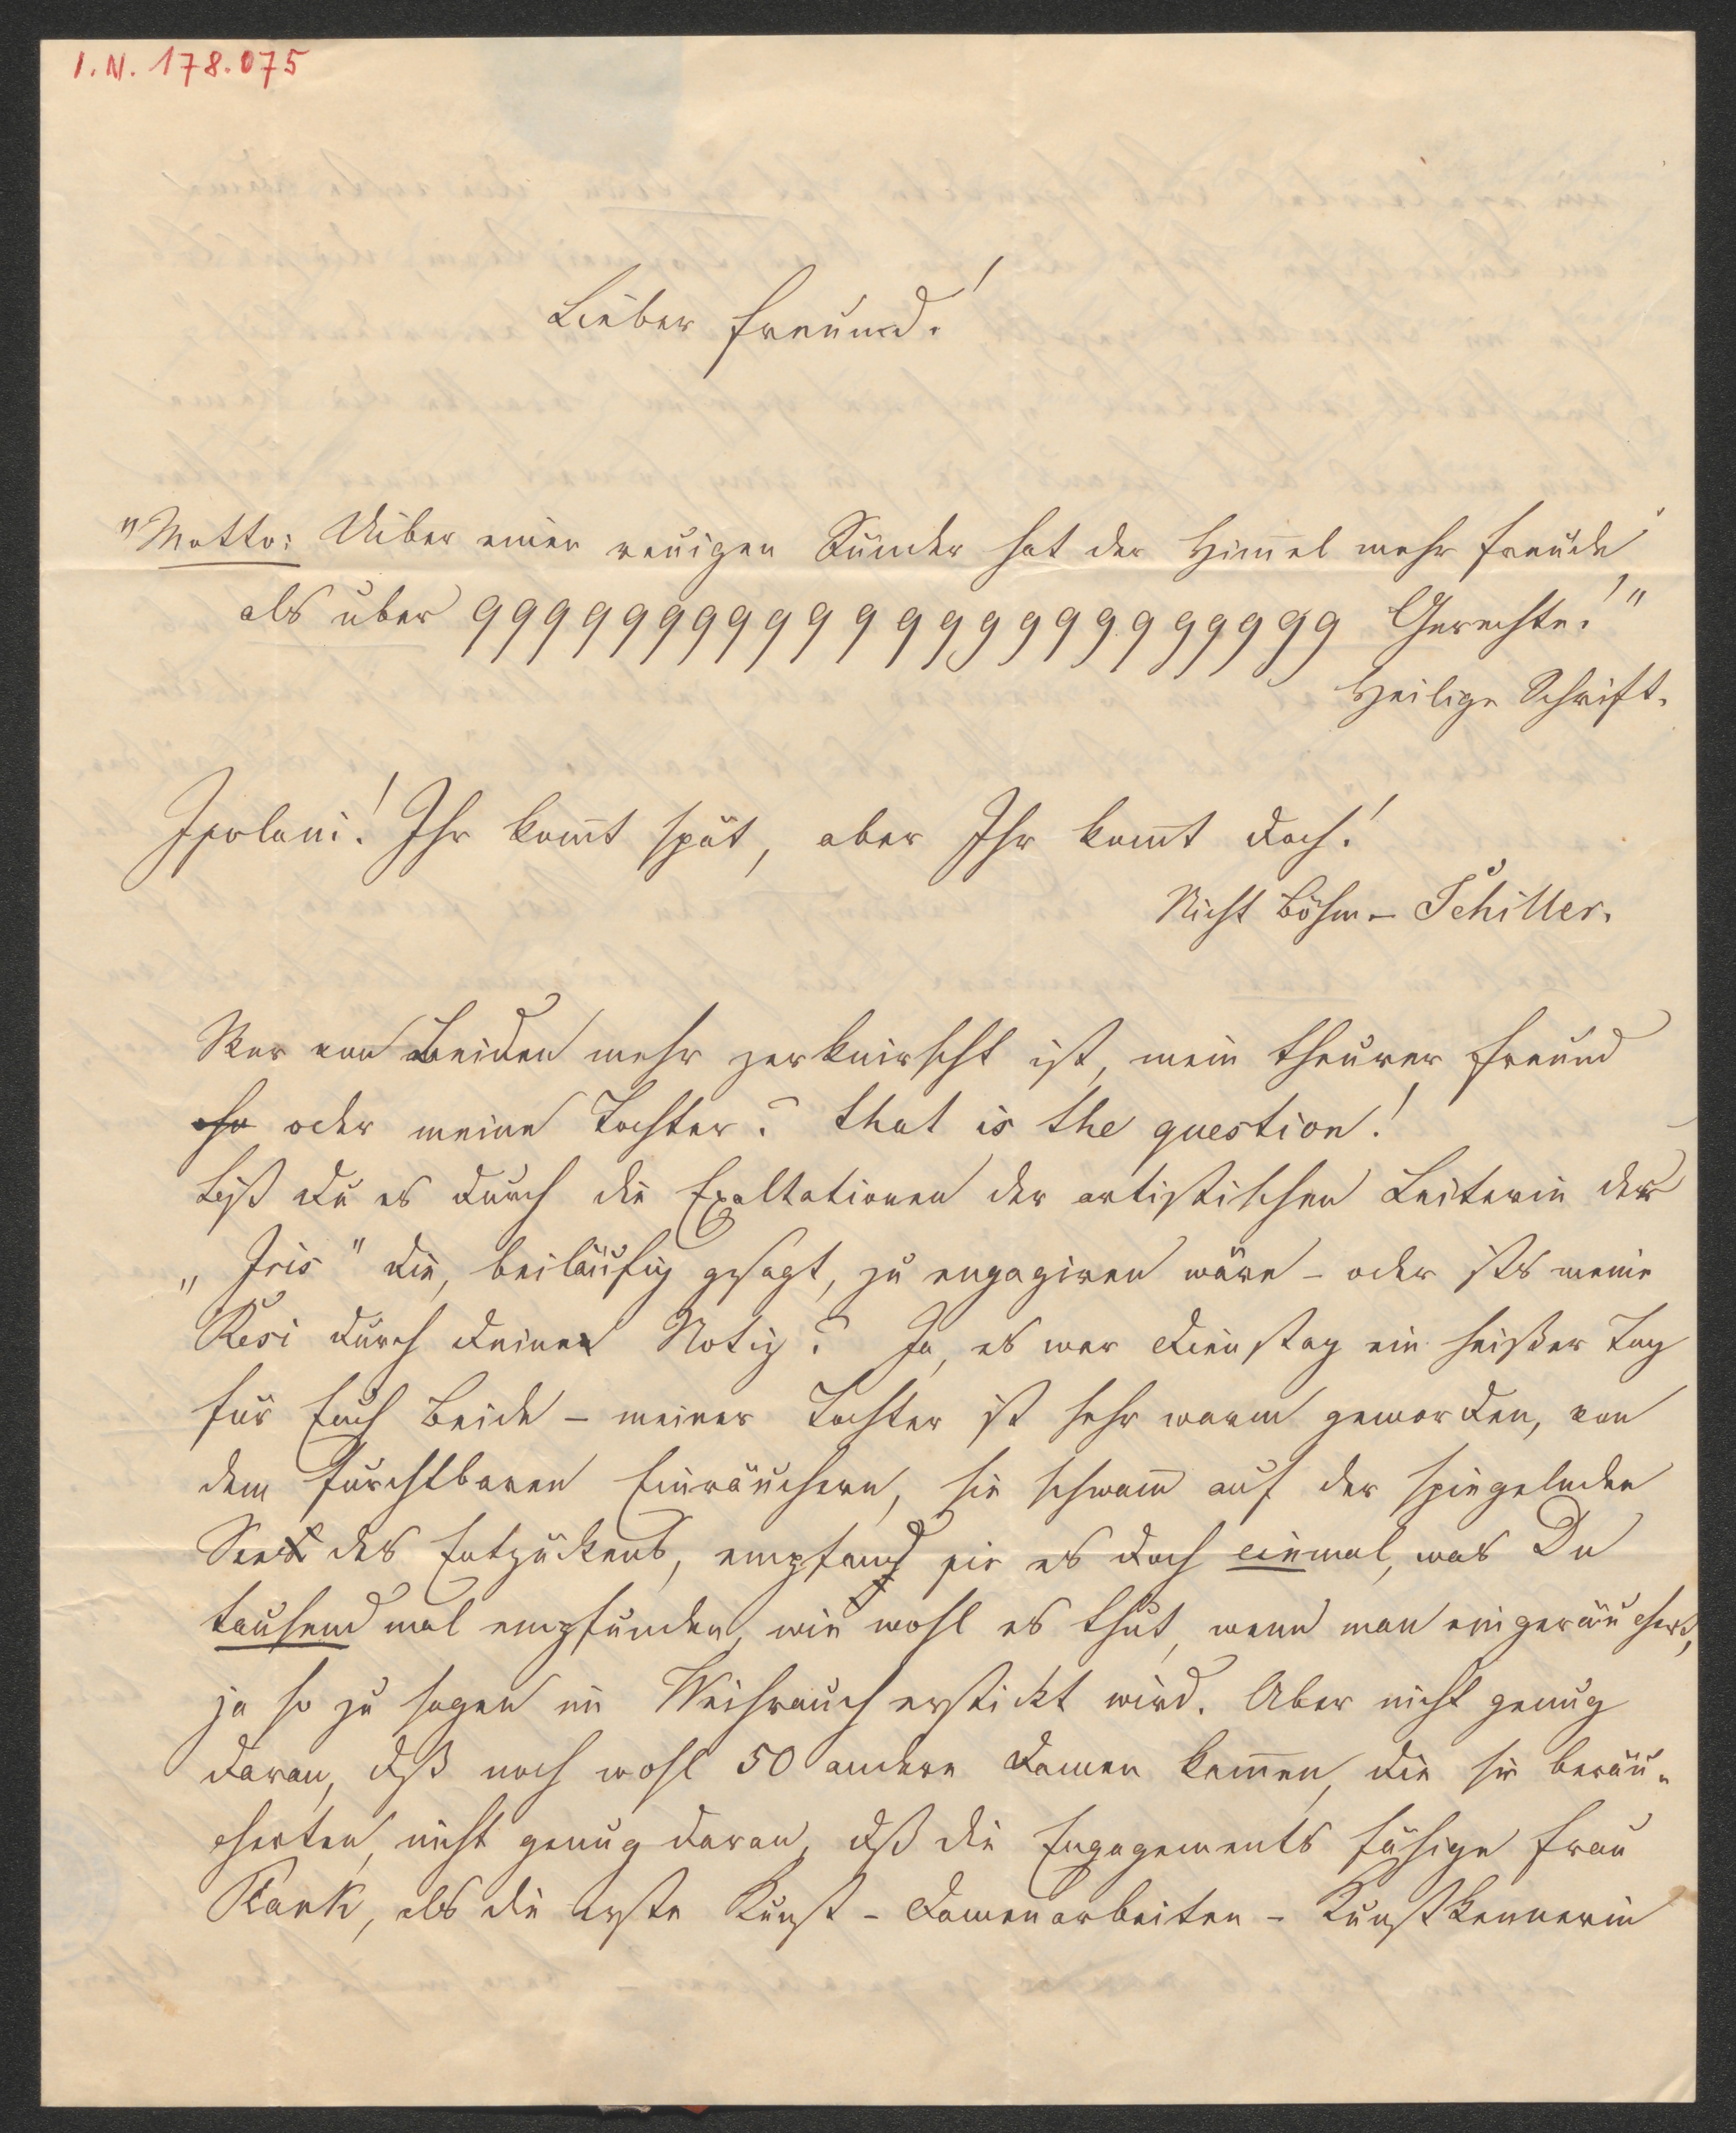 I.N. 178.075
Lieber Freund!
"Motto: Uiber einen reuigen Sünder hat der Him̅el mehr Freude
als über 99999999999999999999999 Gerechte!"
Heilige Schrift.
Isolani! Ihr kom̅t spät, aber Ihr kom̅t doch!
Nicht Böhm – Schiller.
Wer von Beiden mehr zerknirscht ist, mein theurer Freund
oder meine Tochter? that is the question!
Bist du es durch die Exaltationen der artistischen Leiterin der
„Iris" die, beiläufig gesagt, zu engagiren wäre – oder ists meine
Resi durch deine Notiz? Ja, es war Dienstag ein heißer Tag
für Euch Beide – meiner Tochter ist sehr warm geworden, von
dem furchtbaren Einräuchern, sie schwam̅ auf der spiegelnden
See des Entzückens, empfand sie es doch einmal, was Du
tausendmal empfunden, wie wohl es thut, wenn man eingeräuchert,
ja so zu sagen im Weihrauch erstickt wird. Aber nicht genug
daran, dß noch wohl 50 andere Damen kam̅en, die sie beräu-
cherten, nicht genug daran, dß die Engagements fähige Frau
als die erste Kunst – Damenarbeiten – Kunstkennerin